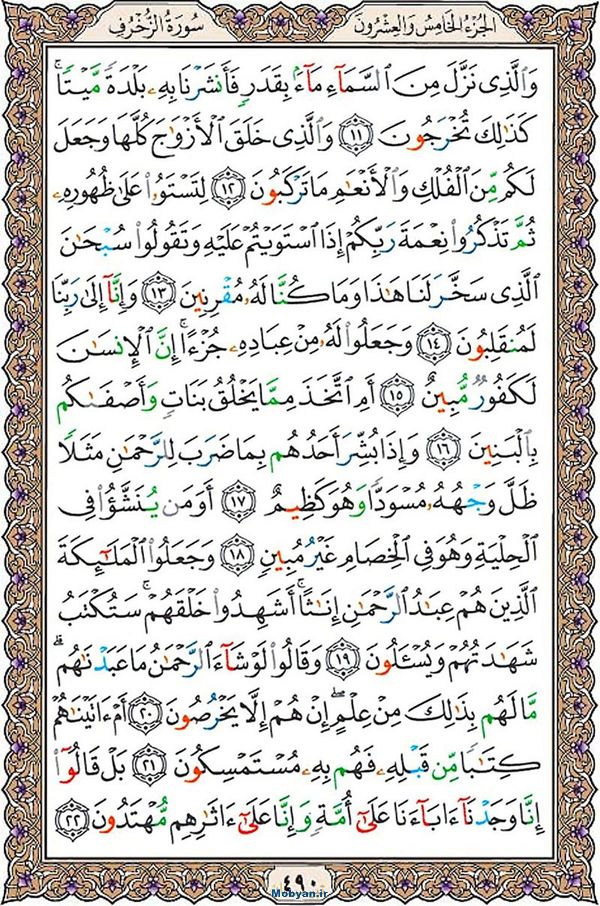 الجزء الخامس والعشرون
سورة الزخرف
وَالَّذِى نَزَّلَ مِنَ السَّمَآءِ مَآءً بِقَدَرٍ فَأَنْشَرْنَا بِهِۦ بَلْدَةً مَّيْتًا ۚ
كَذَٰلِكَ تُخْرَجُونَ ۝١١ وَالَّذِى خَلَقَ الْأَزْوَٰجَ كُلَّهَا وَجَعَلَ
لَكُم مِّنَ الْفُلْكِ وَالْأَنْعَٰمِ مَا تَرْكَبُونَ ۝١٢ لِتَسْتَوُۥا عَلَىٰ ظُهُورِهِۦ
ثُمَّ تَذْكُرُوا نِعْمَةَ رَبِّكُمْ إِذَا اسْتَوَيْتُمْ عَلَيْهِ وَتَقُولُوا سُبْحَٰنَ
الَّذِى سَخَّرَ لَنَا هَٰذَا وَمَا كُنَّا لَهُۥ مُقْرِنِينَ ۝١٣ وَإِنَّآ إِلَىٰ رَبِّنَا
لَمُنقَلِبُونَ ۝١٤ وَجَعَلُوا لَهُۥ مِنْ عِبَادِهِۦ جُزْءًا ۚ إِنَّ الْإِنسَٰنَ
لَكَفُورٌ مُّبِينٌ ۝١٥ أَمِ اتَّخَذَ مِمَّا يَخْلُقُ بَنَاتٍ وَأَصْفَىٰكُم
بِالْبَنِينَ ۝١٦ وَإِذَا بُشِّرَ أَحَدُهُم بِمَا ضَرَبَ لِلرَّحْمَٰنِ مَثَلًا
ظَلَّ وَجْهُهُۥ مُسْوَدًّا وَهُوَ كَظِيمٌ ۝١٧ أَوَمَن يُنَشَّؤُا فِى
الْحِلْيَةِ وَهُوَ فِى الْخِصَامِ غَيْرُ مُبِينٍ ۝١٨ وَجَعَلُوا الْمَلَٰٓئِكَةَ
الَّذِينَ هُمْ عِبَٰدُ الرَّحْمَٰنِ إِنَٰثًا ۚ أَشَهِدُوا خَلْقَهُمْ ۚ سَتُكْتَبُ
شَهَٰدَتُهُمْ وَيُسْـَٔلُونَ ۝١٩ وَقَالُوا لَوْ شَآءَ الرَّحْمَٰنُ مَا عَبَدْنَٰهُم ۗ
مَّا لَهُم بِذَٰلِكَ مِنْ عِلْمٍ ۖ إِنْ هُمْ إِلَّا يَخْرُصُونَ ۝٢٠ أَمْ ءَاتَيْنَٰهُمْ
كِتَٰبًا مِّن قَبْلِهِۦ فَهُم بِهِۦ مُسْتَمْسِكُونَ ۝٢١ بَلْ قَالُوٓا
إِنَّا وَجَدْنَآ ءَابَآءَنَا عَلَىٰٓ أُمَّةٍ وَإِنَّا عَلَىٰٓ ءَاثَٰرِهِم مُّهْتَدُونَ ۝٢٢
٤٩٠
Mobyan.ir